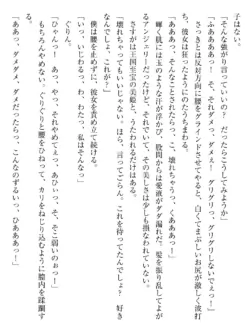 子はない。
「そんな強がり言って！　だったらこうしてみようか」
「ふああああっ！　ぐ、グリグリっ、グリグリしないでぇっ！」
さっきとは反対方向に腰をグラインドさせてやると、白くてまぶしいお尻が激しく波打
ち、彼女は狂ったようにのたうちまわる。
「あっ、ああっ、ダメぇっ！　壊れちゃうっ、くあああっ！」
輝く肌には玉のような汗が浮かび、股間からは愛液がダダ漏れだ。髪を振り乱してよが
るアンジェリーだけど、それでも、その美しさは少しも損なわれていない。
さすがは王国至宝の美姫と、うたわれるだけはある。
「壊れちゃってもいいじゃない。ほら、言ってごらん。これを待ってたんでしょ？　好き
なんでしょ、これが？」
僕は腰を止めずに、彼女を責め立て続ける。
「いっ、いじわるっ、わ、わたっ、私はそんなっ」
ぐりん。
「ひゃんっ！　あーっ、やっ、それやめてえっ、あひぃっ、そ、そこ弱いのぉっ！」
もちろんやめない。ぐりぐりと腰を動かし、カリをねじり込むように膣内を蹂躙する。
「ああっ、ダメダメっ、ダメだったらっ、こんなのずるいっ、ひあああっ！」